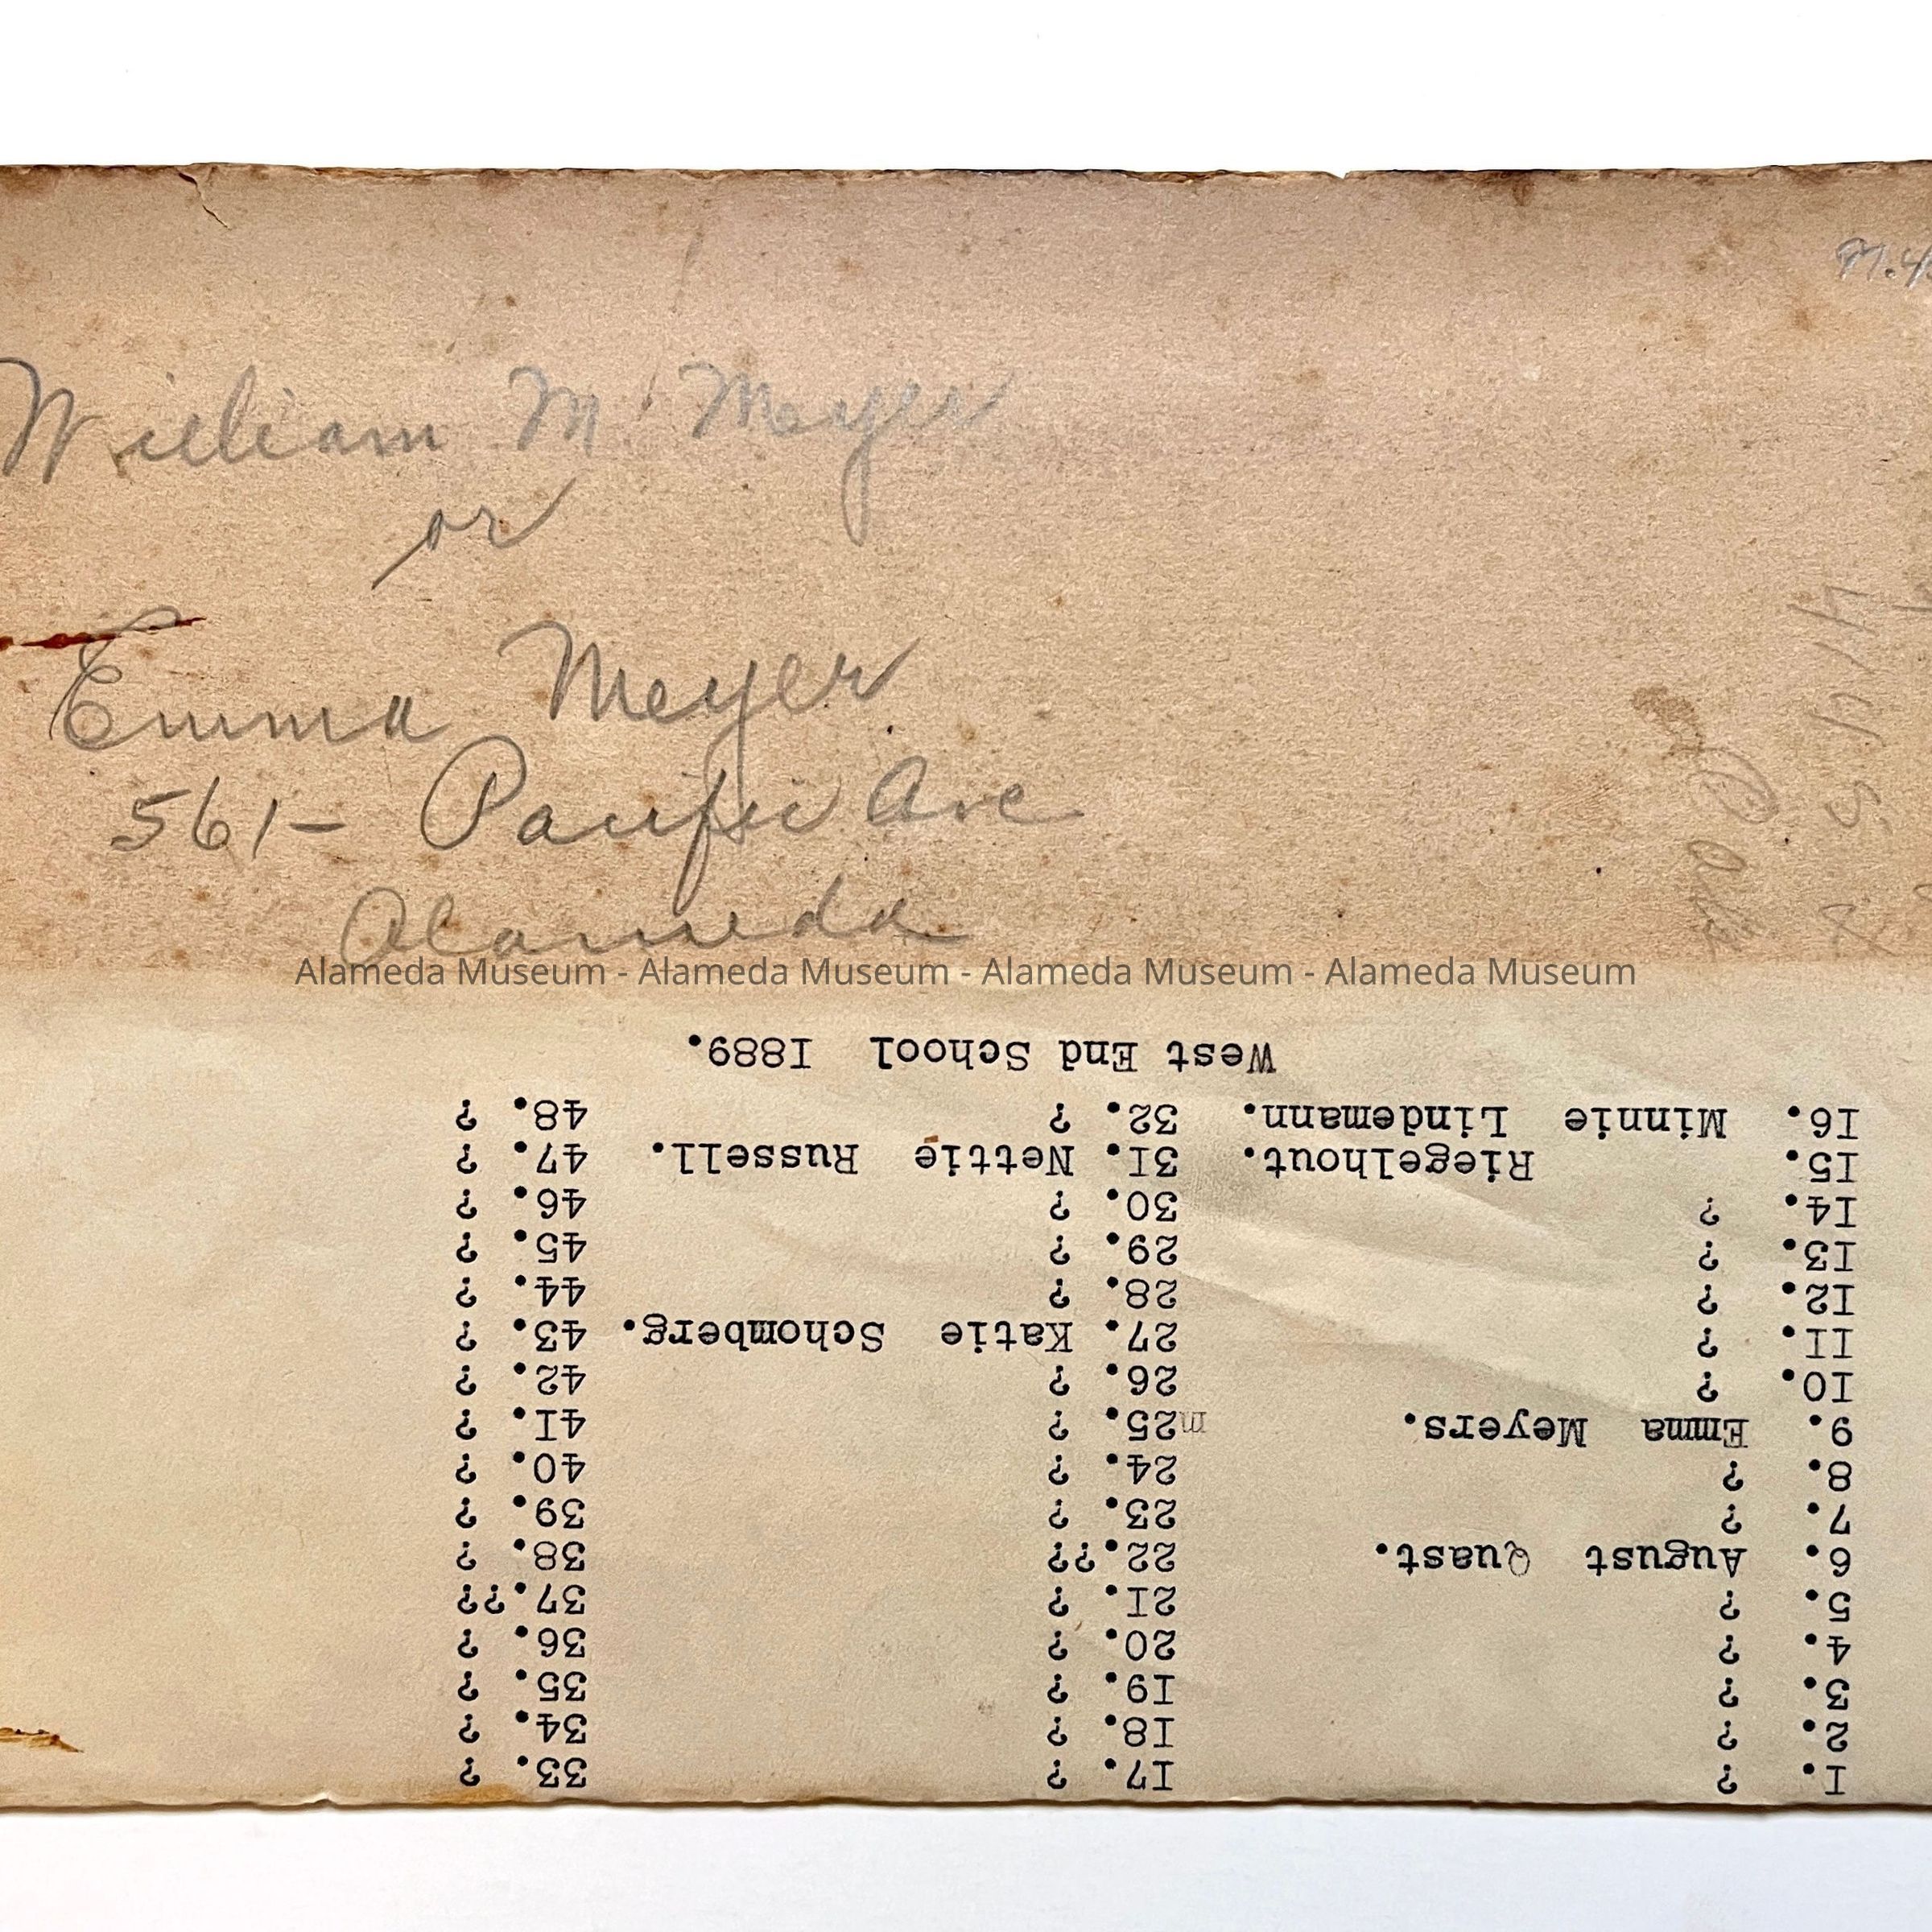 William M Meyer
or
Emma Meyer
561- Pacific Ave
Alameda
Alameda Museum - Alameda Museum - Alameda Museum - Alameda Museum
1. ? 17. ? 33. ?
2. ? 18. ? 34. ?
3. ? 19. ? 35. ?
4. ? 20. ? 36. ?
5. ? 21. ? 37.??
6. August Quast. 22.?? 38. ?
7. ? 23. ? 39. ?
8. ? 24. ? 40. ?
9. Emma Meyers. m25. ? 41. ?
10. ? 26. ? 42. ?
11. ? 27. Katie Schomberg. 43. ?
12. ? 28. ? 44. ?
13. ? 29. ? 45. ?
14. ? 30. ? 46. ?
15. Riegelhout. 31. Nettie Russell. 47. ?
16. Minnie Lindemann. 32. ? 48. ?
West End School 1889.